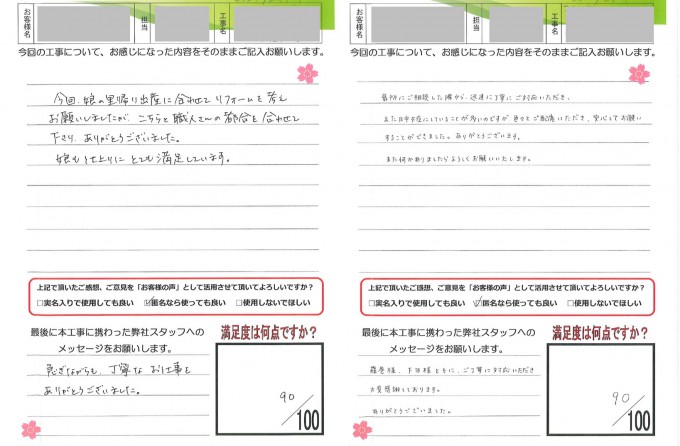 お客様名
担当
工事名
今回の工事について、お感じになった内容をそのままご記入お願いします。
今回、娘の里帰り出産に合わせてリフォームを考え
お願いしましたが、こちらと職人さんの都合を合わせて
下さり、ありがとうございました。
娘も仕上りにとても満足しています。
上記で頂いたご感想、ご意見を「お客様の声」として活用させて頂いてよろしいですか?
□実名入りで使用しても良い ☑匿名なら使っても良い □使用しないでほしい
最後に本工事に携わった弊社スタッフへの
メッセージをお願いします。
急ぎながらも、丁寧なお仕事を
ありがとうございました。
満足度は何点ですか?
90
/100
お客様名
担当
工事名
今回の工事について、お感じになった内容をそのままご記入お願いします。
最初にご相談した際から、迅速に丁寧にご対応いただき、
また日中不在にしていることが多いのですが色々とご配慮いただき、安心してお願い
することができました。ありがとうございます。
また何かありましたらよろしくお願いいたします。
上記で頂いたご感想、ご意見を「お客様の声」として活用させて頂いてよろしいですか?
□実名入りで使用しても良い ☑匿名なら使っても良い □使用しないでほしい
最後に本工事に携わった弊社スタッフへの
メッセージをお願いします。
様、下田様ともに、ご丁寧に対応いただき
大変感謝しております。
ありがとうございました。
満足度は何点ですか?
90
/100